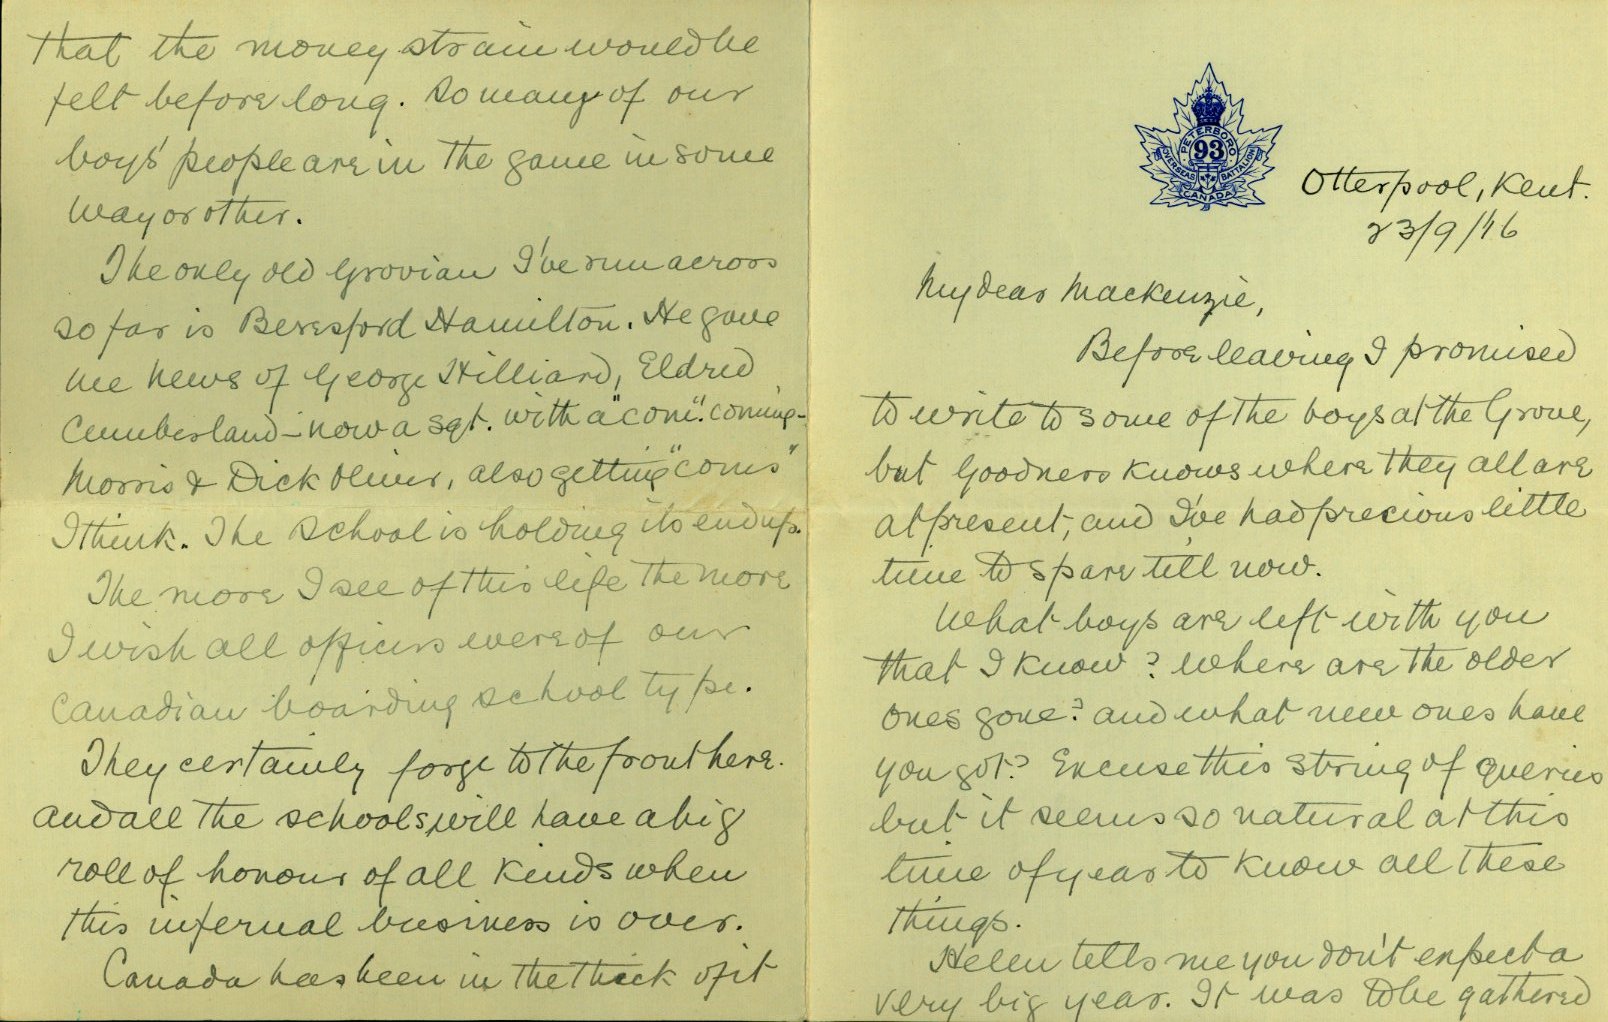 PETERBORO
93
OVERSEAS BATTALION
CANADA
Otterpool, Kent.
23/9/16
My dear Mackenzie,
Before leaving I promised
to write to some of the boys at the Grove,
but Goodness knows where they all are
at present, and I've had precious little
time to spare till now.
What boys are left with you
that I know? Where are the older
ones gone? and what new ones have
you got? Excuse this string of queries
but it seems so natural at this
time of year to know all these
things.
Helen tells me you don't expect a
very big year. It was to be gathered
that the money strain would be
felt before long. So many of our
boys' people are in the game in some
way or other.
The only old Grovian I've run across
so far is Beresford Hamilton. He gave
me news of George Hilliard, Eldred
Cumberland – now a sgt. with a "com". coming –
Morris & Dick Oliver, also getting "coms"
I think. The School is holding its end up.
The more I see of this life the more
I wish all officers were of our
Canadian boarding school type.
They certainly forge to the front here.
and all the schools, will have a big
roll of honour of all kinds when
this infernal business is over.
Canada has been in the thick of it